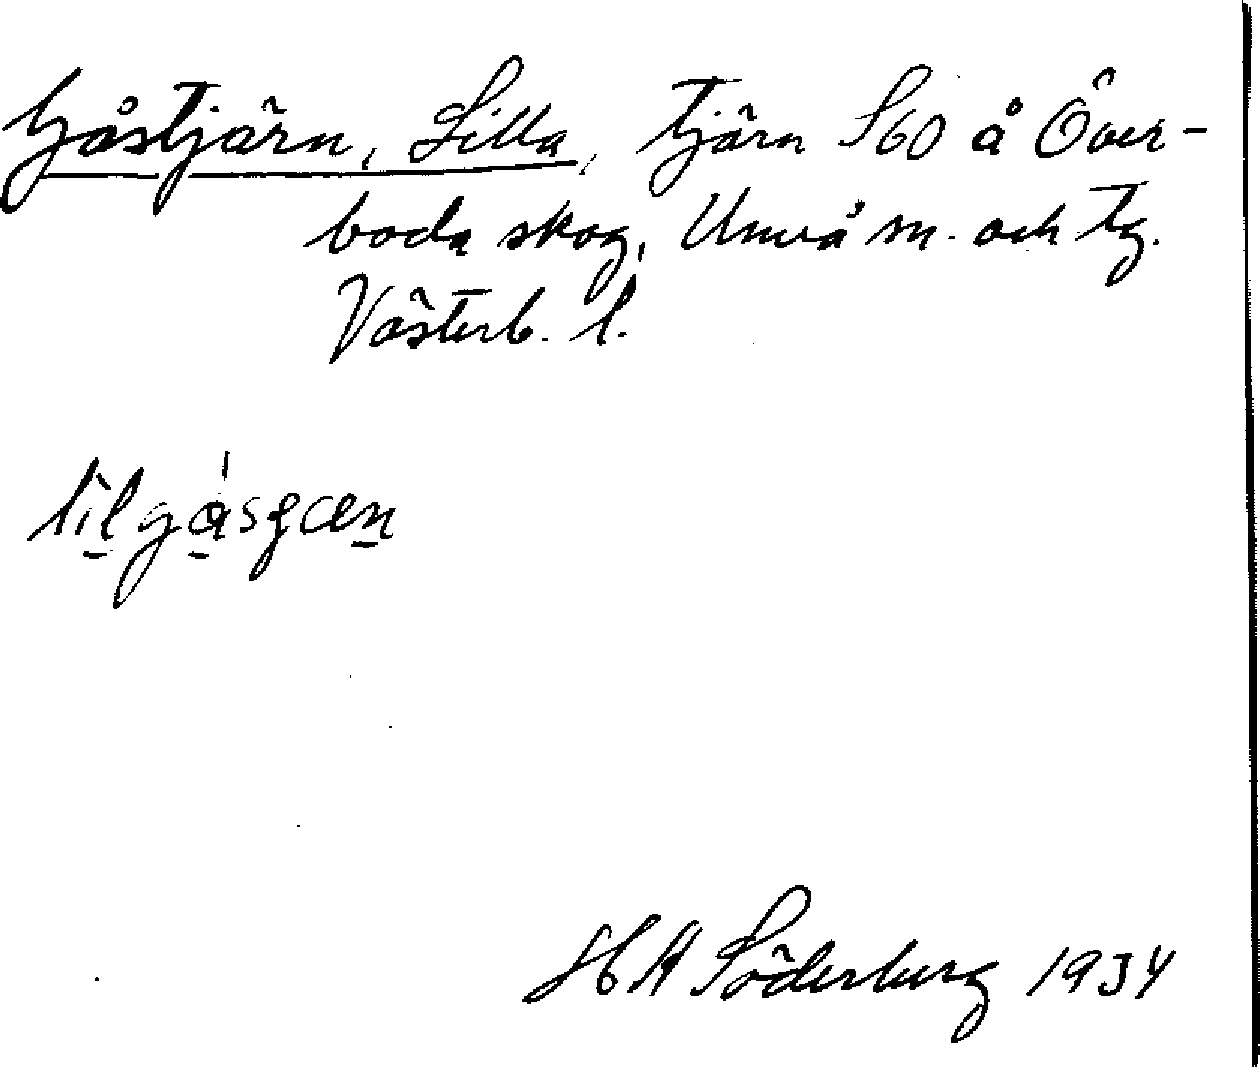 Gåstjärn, Lilla, tjärn S60 å Över-
boda skog, Umeå sn. och tg.
Västerb. l.
H A Söderberg 1934